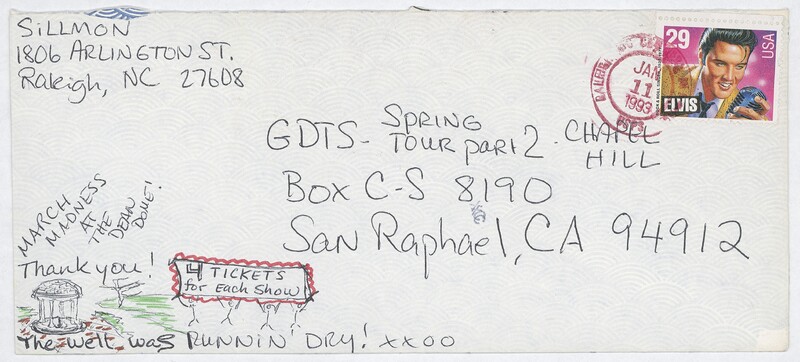 SILLMON
1806 ARLINGTON ST.
Raleigh, NC 27608
29
USA
ELVIS
RALEIGH
JAN
11
1993
USPS
GDTS - SPRING TOUR part 2 - CHAPEL HILL
BOX C-S 8190
SAN Raphael, CA 94912
MARCH
MADNESS
AT
THE
DEAN
DOME!
Thank you!
4 TICKETS
for Each Show
The well was RUNNIN' DRY! xxoo